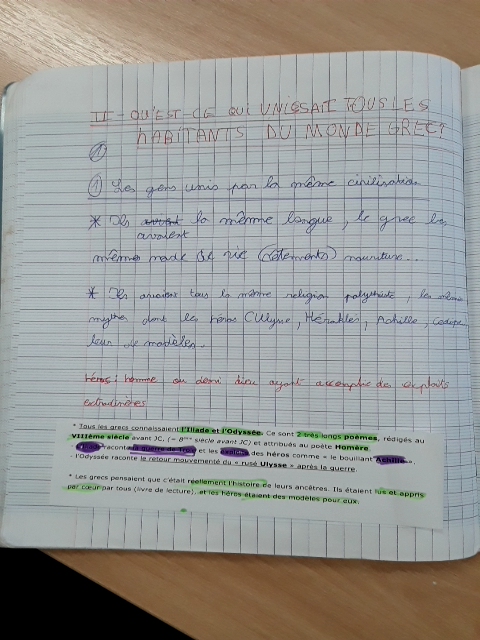 II - QU'EST-CE QUI UNISSAIT TOUS LES
HABITANTS DU MONDE GREC?
①
① Les gens unis par la même civilisation
* Ils la même langue, le grec les
avaient
mêmes mode de vie (vêtements) nourriture...
* Ils avaient tous la même religion polythéiste, les
mythes dont les héros (Ulysse, Héraklès, Achille,
leur de modèles.
héros: homme ou demi dieu ayant accomplie des exploits
extradinaires
* Tous les grecs connaissaient l'Iliade et l'Odyssée. Ce sont 2 très longs poèmes, rédigés au
VIIIème siècle avant JC, (= 8ème siècle avant JC) et attribués au poète Homère.
- l'Iliade raconte la guerre de Troie et les exploits des héros comme « le bouillant Achille »,
- l'Odyssée raconte le retour mouvementé du « rusé Ulysse » après la guerre.
* Les grecs pensaient que c'était réellement l'histoire de leurs ancêtres. Ils étaient lus et appris
par cœur par tous (livre de lecture), et les héros étaient des modèles pour eux.